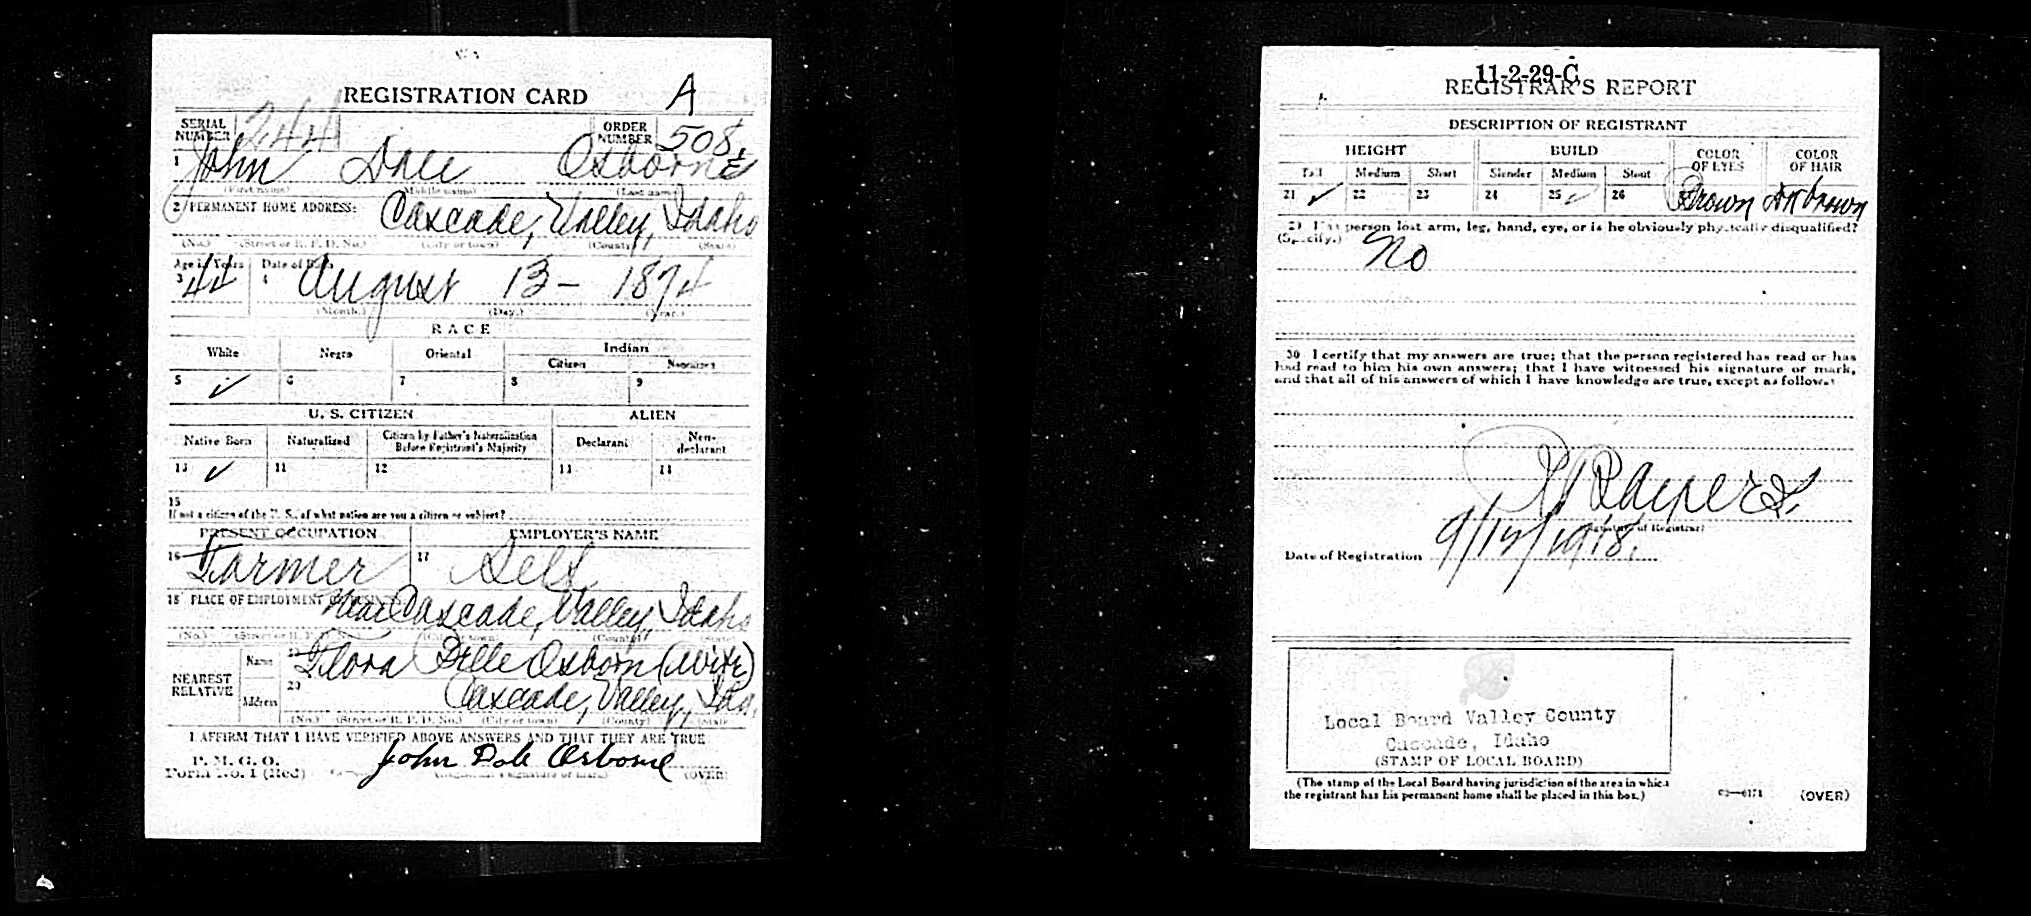 REGISTRATION CARD A
SERIAL NUMBER 244 ORDER NUMBER 508
1 John Dale Osborne
(First name) (Middle name) (Last name)
2 PERMANENT HOME ADDRESS: Cascade, Valley, Idaho
(No.) (Street or R. F. D. No.) (City or town) (County) (State)
Age in Years Date of Birth
3 44 4 August 13 - 1874
(Month.) (Day.) (Year.)
RACE
White Negro Oriental Indian
Citizen Noncitizen
5 ✓ 6 7 8 9
U. S. CITIZEN ALIEN
Native Born Naturalized Citizen by Father's Naturalization Before Registrant's Majority Declarant Non-declarant
10 ✓ 11 12 13 14
15
If not a citizen of the U. S., of what nation are you a citizen or subject?
PRESENT OCCUPATION EMPLOYER'S NAME
16 Farmer 17 Self
18 PLACE OF EMPLOYMENT Near Cascade, Valley, Idaho
(No.) (Street or R. F. D. No.) (City or town) (County) (State)
NEAREST RELATIVE Name 19 Flora Belle Osborn (wife)
Address 20 Cascade, Valley, Ida.
(No.) (Street or R. F. D. No.) (City or town) (County) (State)
I AFFIRM THAT I HAVE VERIFIED ABOVE ANSWERS AND THAT THEY ARE TRUE
P. M. G. O.
Form No. 1 (Red) John Dale Osborne (OVER)
11-2-29-C
REGISTRAR'S REPORT
DESCRIPTION OF REGISTRANT
HEIGHT BUILD COLOR OF EYES COLOR OF HAIR
Tall Medium Short Slender Medium Stout
21 ✓ 22 23 24 25 ✓ 26 Brown Dk brown
29 Has person lost arm, leg, hand, eye, or is he obviously physically disqualified?
(Specify.) No
30 I certify that my answers are true; that the person registered has read or has
had read to him his own answers; that I have witnessed his signature or mark,
and that all of his answers of which I have knowledge are true, except as follows:
(Signature of Registrar)
Date of Registration 9/12/1918.
Local Board Valley County
Cascade, Idaho
(STAMP OF LOCAL BOARD)
(The stamp of the Local Board having jurisdiction of the area in which
the registrant has his permanent home shall be placed in this box.)
03—6171 (OVER)